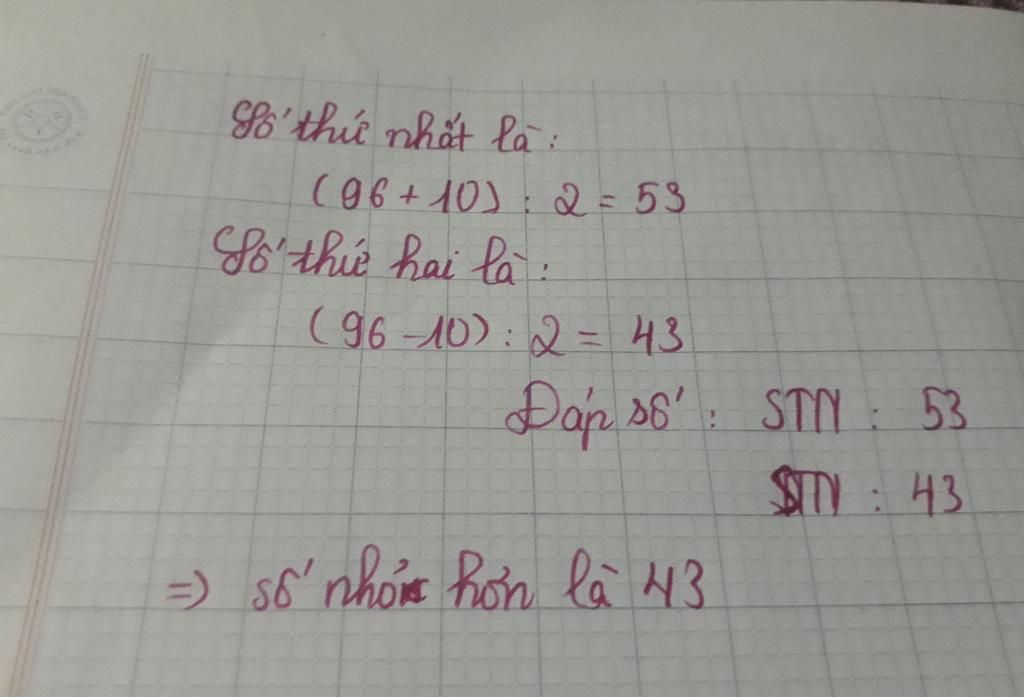 Số thứ nhất là:
(96 + 10) : 2 = 53
Số thứ hai là :
(96 - 10) : 2 = 43
Đáp số : STN : 53
STN : 43
=> số nhỏ hơn là 43